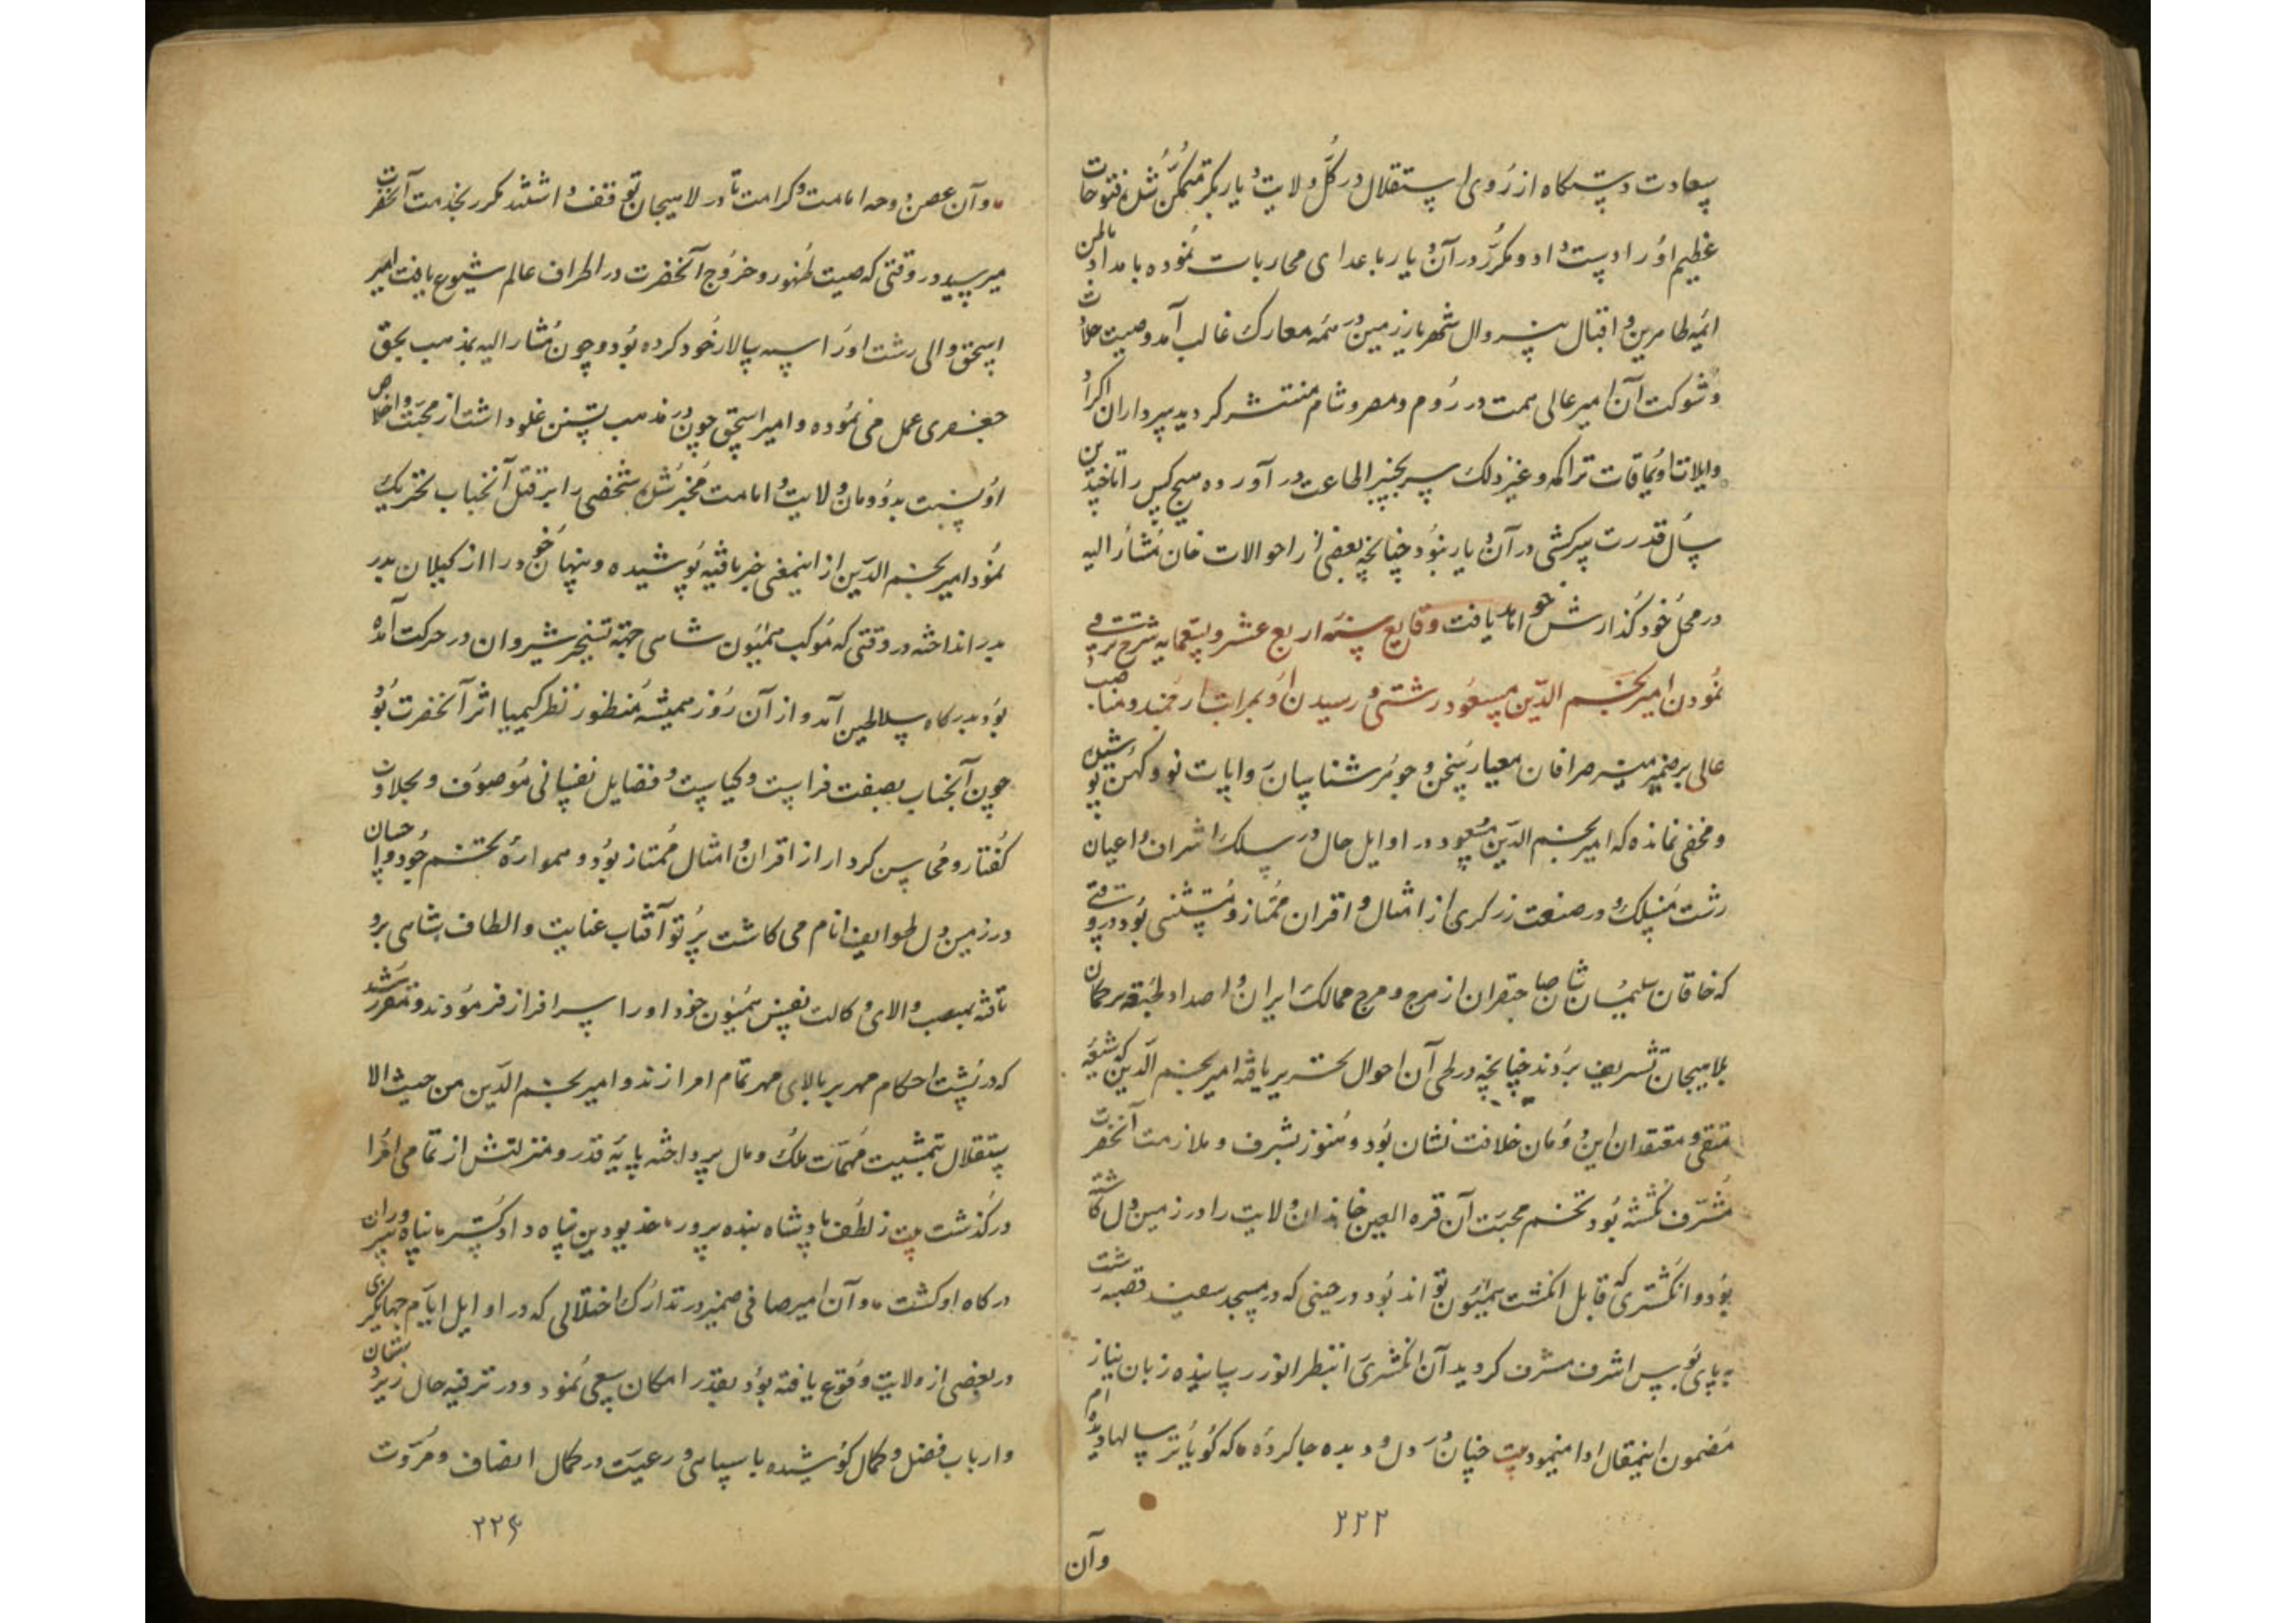 سعادت دستگاه از روی استقلال در کل ولایت دیاربکر متمکن شده فتوحات
عظیم او را دست داد و مکرر در آن دیار با اعدای محاربات نموده بامداد بواطن
ائمه طاهرین و اقبال بیزوال شهریار زمین در همه معارک غالب آمد وصیت جلادت
و شوکت آن امیر عالی همت در روم و مصر و شام منتشر گردید سرداران اکراد
و ایلات و اویماقات تراکمه و غیر ذلک سر بچنبر اطاعت در آورده هیچ کس را تا چندین
سال قدرت سرکشی در آن دیار نبود چنانچه بعضی از احوالات خان مشار الیه
در محل خود گذارش خواهد یافت وقایع سنه اربع عشر و تسعمایه شرح ترقی
نمودن امیر نجم الدین مسعود رشتی و رسیدن او بمراتب ارجمند و مناصب
عالی بر ضمیر منیر صرافان معیار سخن و جوهر شناسان روایات نو و کهن پوشیده
و مخفی نمانده که امیر نجم الدین مسعود در اوایل حال در سلک اشراف و اعیان
رشت منسلک و در صنعت زرگری از امثال و اقران ممتاز و مستثنی بود در وقتی
که خاقان سلیمان شان صاحبقران از هرج و مرج ممالک ایران و اضداد طبقه ترکمان
بلاهیجان تشریف بردند چنانچه در طی آن احوال تحریر یافته امیر نجم الدین که شیعه
متقی و معتقد این دودمان خلافت نشان بود و هنوز بشرف و ملازمت آنحضرت
مشرف نگشته بود تخم محبت آن قره العین خاندان ولایت را در زمین دل کاشته
بود و انگشتری که قابل انگشت همیون تواند بود در حینی که در مسجد سفید قصبه رشت
به پای بوس اشرف مشرف گردید آن انگشتری را بنظر انور رسانیده زبان نیاز
مضمون اینمقال ادا مینمود بیت چنان در دل و دیده جا کرده که گویا تو را سالها دیده ام
وآن
و آن غصن دوحه امامت و کرامت تا در لاهیجان توقف داشتند مکرر بخدمت آنحضرت
میرسید و در وقتی که صیت ظهور و خروج آنحضرت در اطراف عالم شیوع یافت امیر
اسحق والی رشت او را سپه سالار خود کرده بود و چون مشار الیه بمذهب بحق
جعفری عمل می نموده و امیر اسحق چون در مذهب تسنن غلو داشت از محبت و اخلاص
او نسبت بدودمان ولایت و امامت مخبر شده شخصی را بر قتل آنجناب تحریک
نمود امیر نجم الدین از اینمعنی خبر یافته پوشیده و پنهان خود را از گیلان بدر
بدر انداخته در وقتی که موکب همیون شاهی جهة تسخیر شیروان در حرکت آمده
بود بدرگاه سلاطین آمد و از آن روز همیشه منظور نظر کیمیا اثر آنحضرت بود
چون آنجناب بصفت فراست و کیاست و فضایل نفسانی موصوف و بحلاوت
گفتار و محاسن کردار از اقران و امثال ممتاز بود و همواره تخم جود و احسان
در زمین دل طوایف انام می کاشت پرتو آفتاب عنایت و الطاف شاهی برو
تافته بمنصب والای وکالت نفیس همیون خود او را سرافراز فرمودند و مقرر شد
که در پشت احکام مهر بر بالای مهر تمام امرا زند و امیر نجم الدین من حیث الا
ستقلال بتمشیت مهمات ملک و مال پرداخته پایه قدر و منزلتش از تمامی امرا
درگذشت بیت ز لطف پادشاه بنده پرور خدیو دین پناه دادگستر پناه سروران
درگاه او گشت و آن امیر صافی ضمیر در تدارک اختلالی که در اوایل ایام جهانگیری
در بعضی از ولایت وقوع یافته بود بقدر امکان سعی نمود و در ترفیه حال زیردستان
و ارباب فضل و کمال کوشیده با سپاهی و رعیت در کمال انصاف و مروت